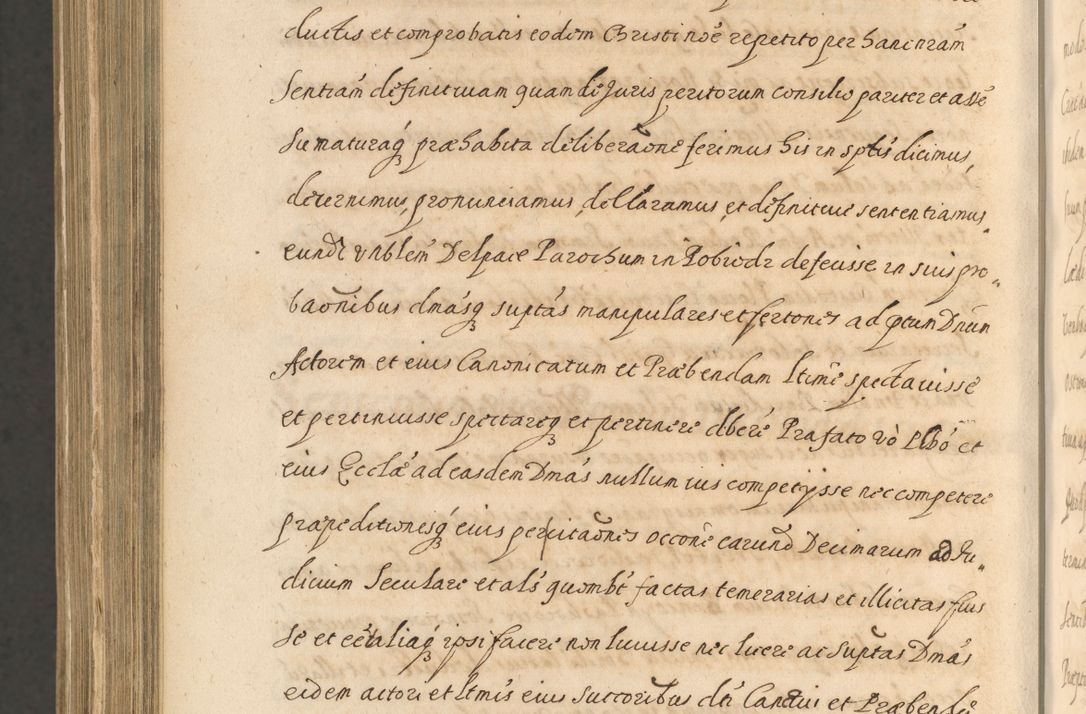 ductis et comprobatis eodem Christi noe repetito per hanc nram
Sentiam definitiuam quam de Juris peritorum consilio pariter et asse
su maturaq praehabita deliberaone ferimus his in sptis dicimus,
decernimus, pronunciamus, dellaramus, et definitiue sententiamus„
eund Vnblem Delpace Parochum in Pobiedr defecisse in suis pro„
baonibus dmasq suptas manipulares et fertones ad ptum Dnum
Actorem et eius Canonicatum et Praebendam ltime spectauisse
et pertinuisse spectareq et pertinere dbere Praefato vo Plbo et
eius Ecclae ad easdem Dmas nullum ius competijsse nec competere
praepeditionesq eius percitaones occone earund Decimarum ad Ju„
dicium Seculare et als quombt factas temerarias et illicitas fuis
se et ee taliaq ipsi facere non licuisse nec licere ac suptas Dmas
eidem actori et ltmis eius succoribus dti Cantus et Praebendae